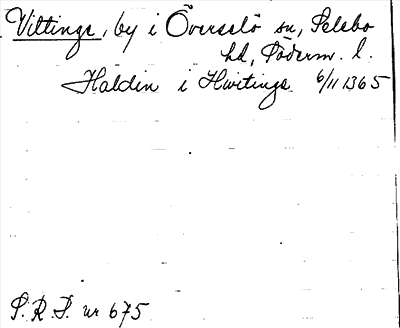 Viltinge, by i Överselö sn, Selebo
hd, Söderm. l.
Haldin i Hwitinge 6/11 1365
S.R.P. nr 675